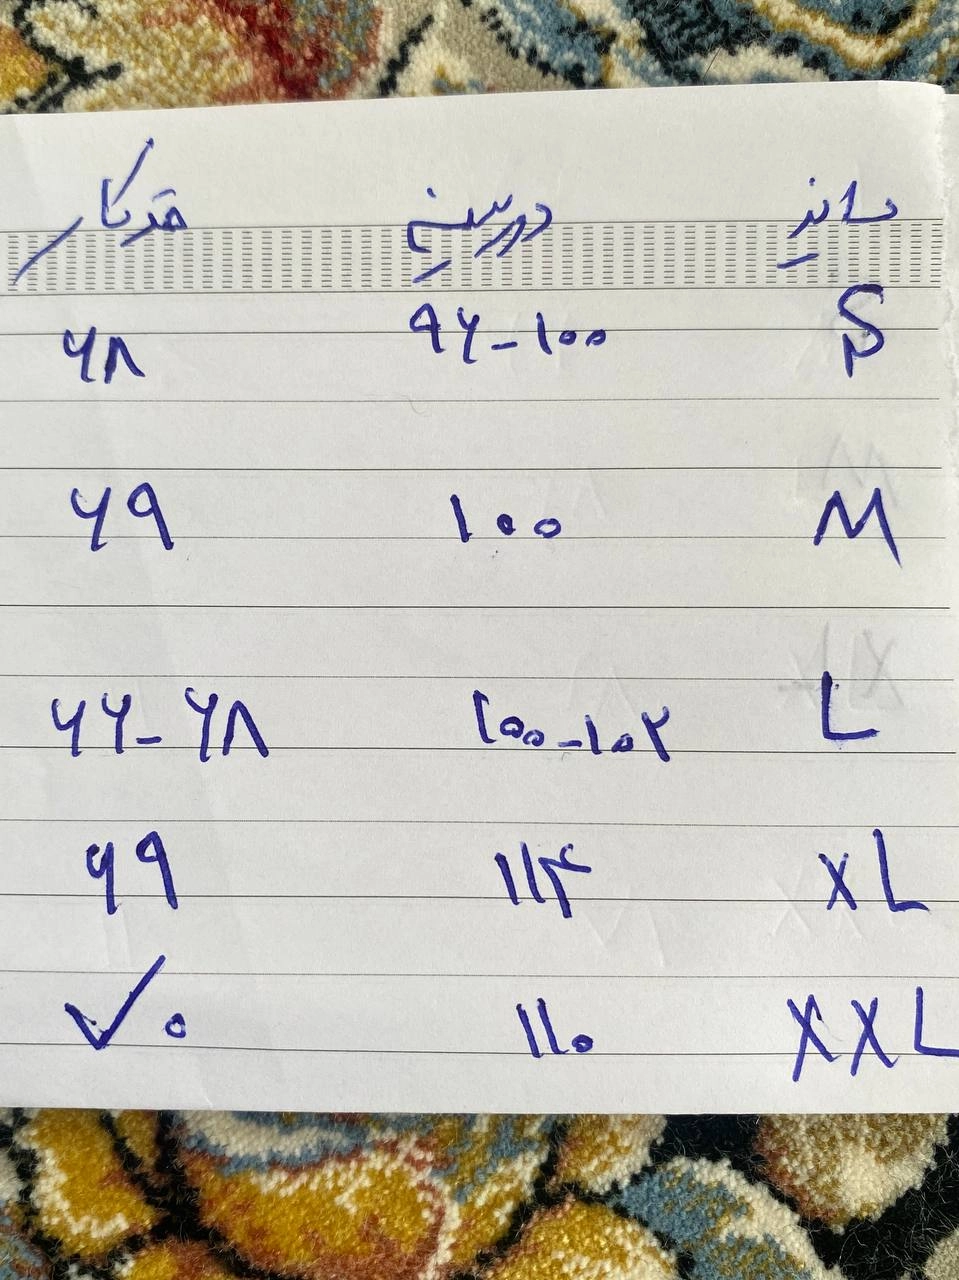 سایز دورسینه قدکار
S ۹۶-۱۰۰ ۶۸
M ۱۰۰ ۶۹
L ۱۰۰-۱۰۲ ۶۶-۶۸
XL ۱۱۴ ۶۹
XXL ۱۱۰ ۷۰